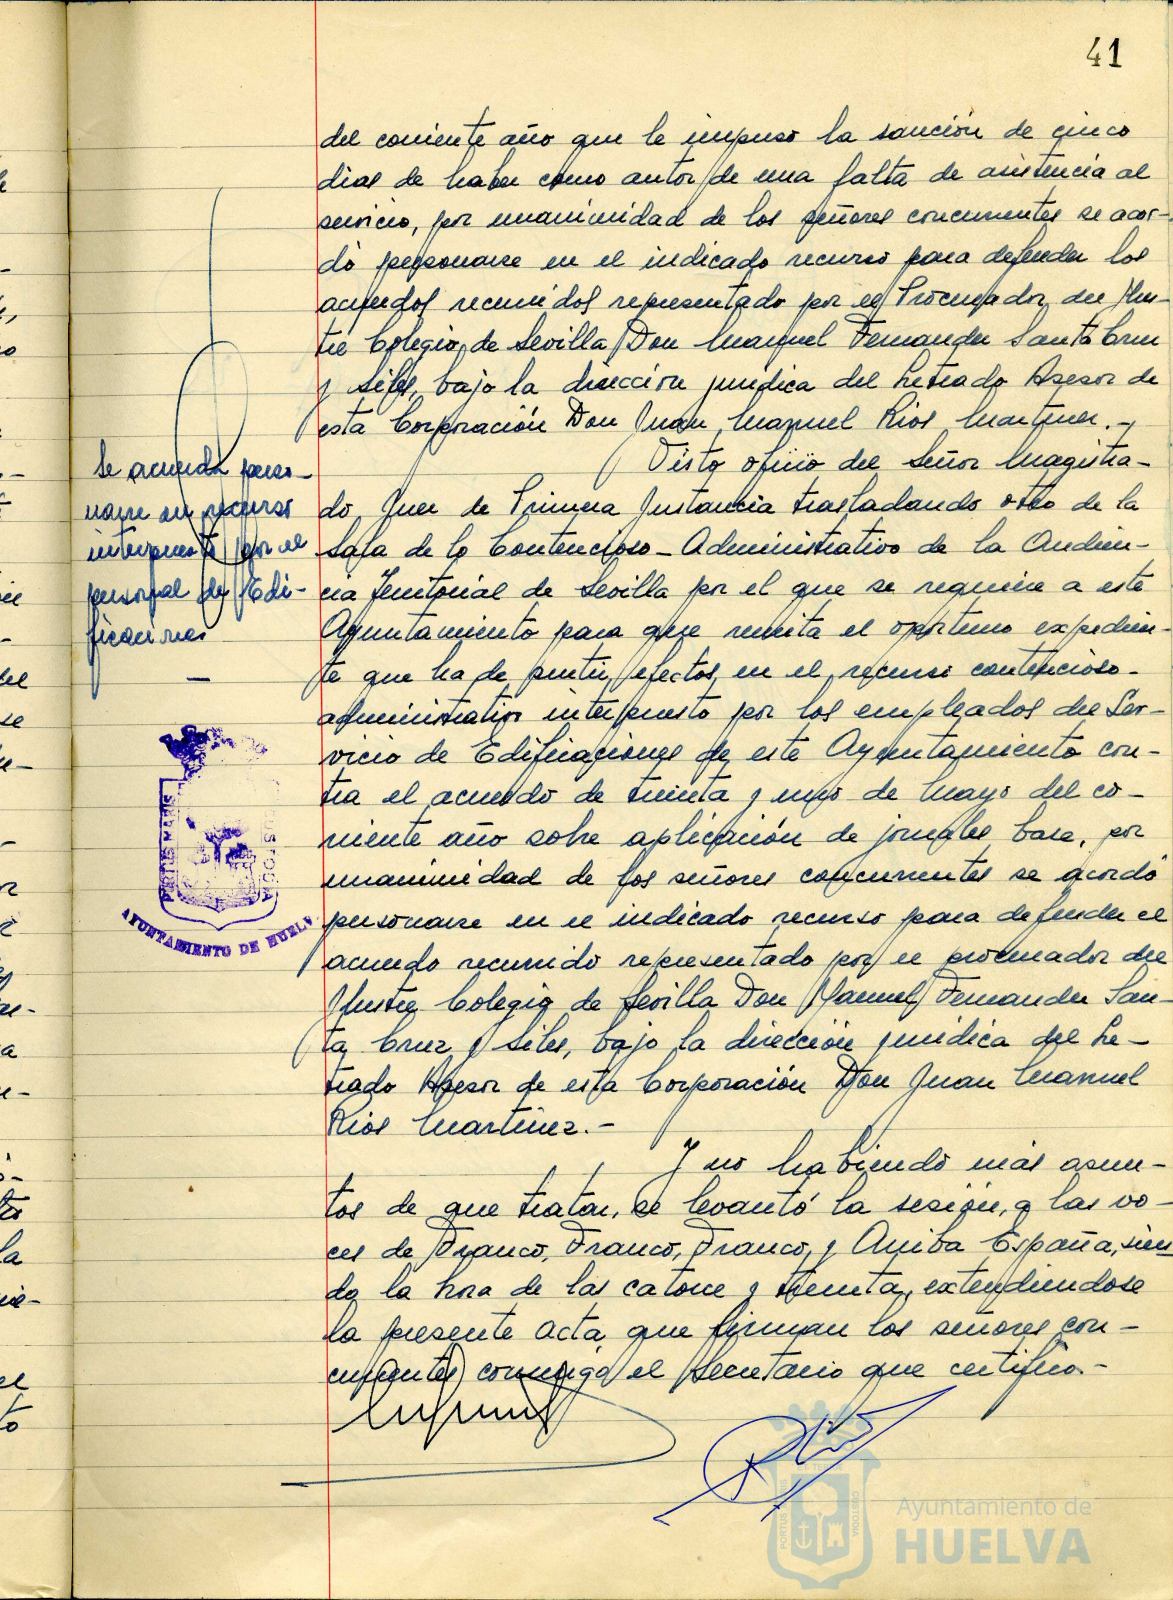 41
del corriente año que le impuso la sanción de cinco
dias de haber como autor de una falta de asistencia al
servicio, por unanimidad de los señores concurrentes se acor-
dó personarse en el indicado recurso para defender los
acuerdos recurridos representado por el Procurador del Ilus-
tre Colegio de Sevilla Don Manuel Fernandez Santa Cruz
y Siles, bajo la dirección juridica del Letrado Asesor de
esta Corporación Don Juan Manuel Rios Martinez.-
Se acuerda perso-
narse en recurso
interpuesto por el
personal de Edi-
ficaciones
—
Visto oficio del Señor Magistra-
do Juez de Primera Instancia trasladando otro de la
Sala de lo Contencioso-Administrativo de la Audien-
cia Territorial de Sevilla por el que se requiere a este
Ayuntamiento para que remita el oportuno expedien-
te que ha de surtir efectos en el recurso contencioso-
administrativo interpuesto por los empleados del Ser-
vicio de Edificaciones de este Ayuntamiento con-
tra el acuerdo de treinta y uno de Mayo del co-
rriente año sobre aplicación de jornales base, por
unanimidad de los señores concurrentes se acordó
personarse en el indicado recurso para defender el
acuerdo recurrido representado por el procurador del
Ilustre Colegio de Sevilla Don Manuel Fernandez San-
ta Cruz y Siles, bajo la dirección juridica del Le-
trado Asesor de esta Corporación Don Juan Manuel
Rios Martinez.-
Y no habiendo más asun-
tos de que tratar, se levantó la sesión, a las vo-
ces de Franco, Franco, Franco, y Arriba España, sien-
do la hora de las catorce y treinta, extendiendose
la presente acta que firman los señores con-
currentes conmigo el Secretario que certifico.-
AYUNTAMIENTO DE HUELVA
Ayuntamiento de
HUELVA